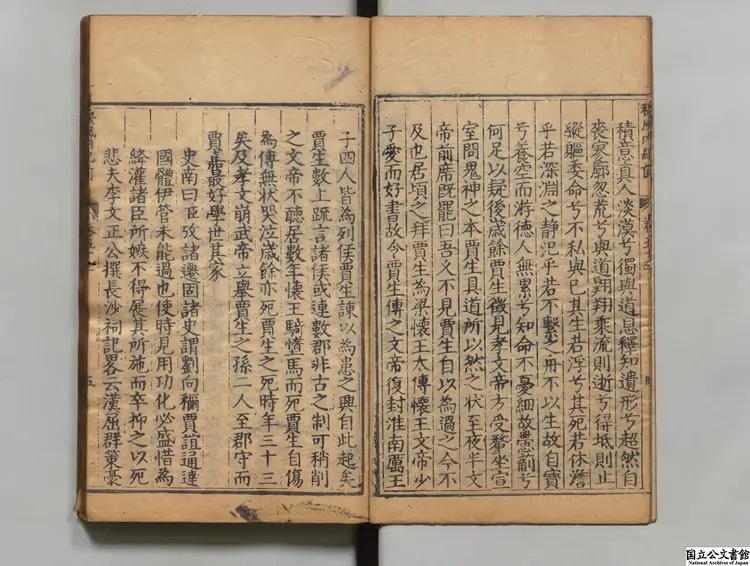 積意真人淡漠兮獨與道息釋知遺形兮超然自
喪寥廓忽荒兮與道翺翔乘流則逝兮得坻則止
縱軀委命兮不私與己其生若浮兮其死若休澹
乎若深淵之静汜乎若不繫之舟不以生故自寶
兮養空而游德人無累兮知命不憂細故蔕葪兮
何足以疑後歲餘賈生徵見孝文帝方受釐坐宣
室問鬼神之本賈生具道所以然之状至夜半文
帝前席既罷曰吾久不見賈生自以為過之今不
及也居頃之拜賈生為梁懷王太傅懷王文帝少
子愛而好書故令賈生傅之文帝復封淮南厲王
子四人皆為列侯賈生諫以為患之興自此起矣
賈生數上疏言諸侯或連數郡非古之制可稍削
之文帝不聽居數年懷王騎墮馬而死賈生自傷
為傅無状哭泣歲餘亦死賈生之死時年三十三
矣及孝文崩武帝立舉賈生之孫二人至郡守而
賈嘉最好學世其家
史南曰臣攷諸遷固諸史謂劉向稱賈誼通達
國體伊管未能過也使時見用功化必盛惜為
絳灌諸臣所嫉不得展其所施而卒抑之以死
悲夫李文正公撰長沙祠記畧云漢屈群策橐
五
国立公文書館
National Archives of Japan